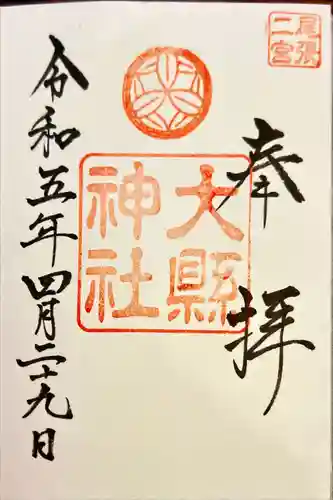 尾張二宮
奉拝
大縣神社
令和五年四月二十九日